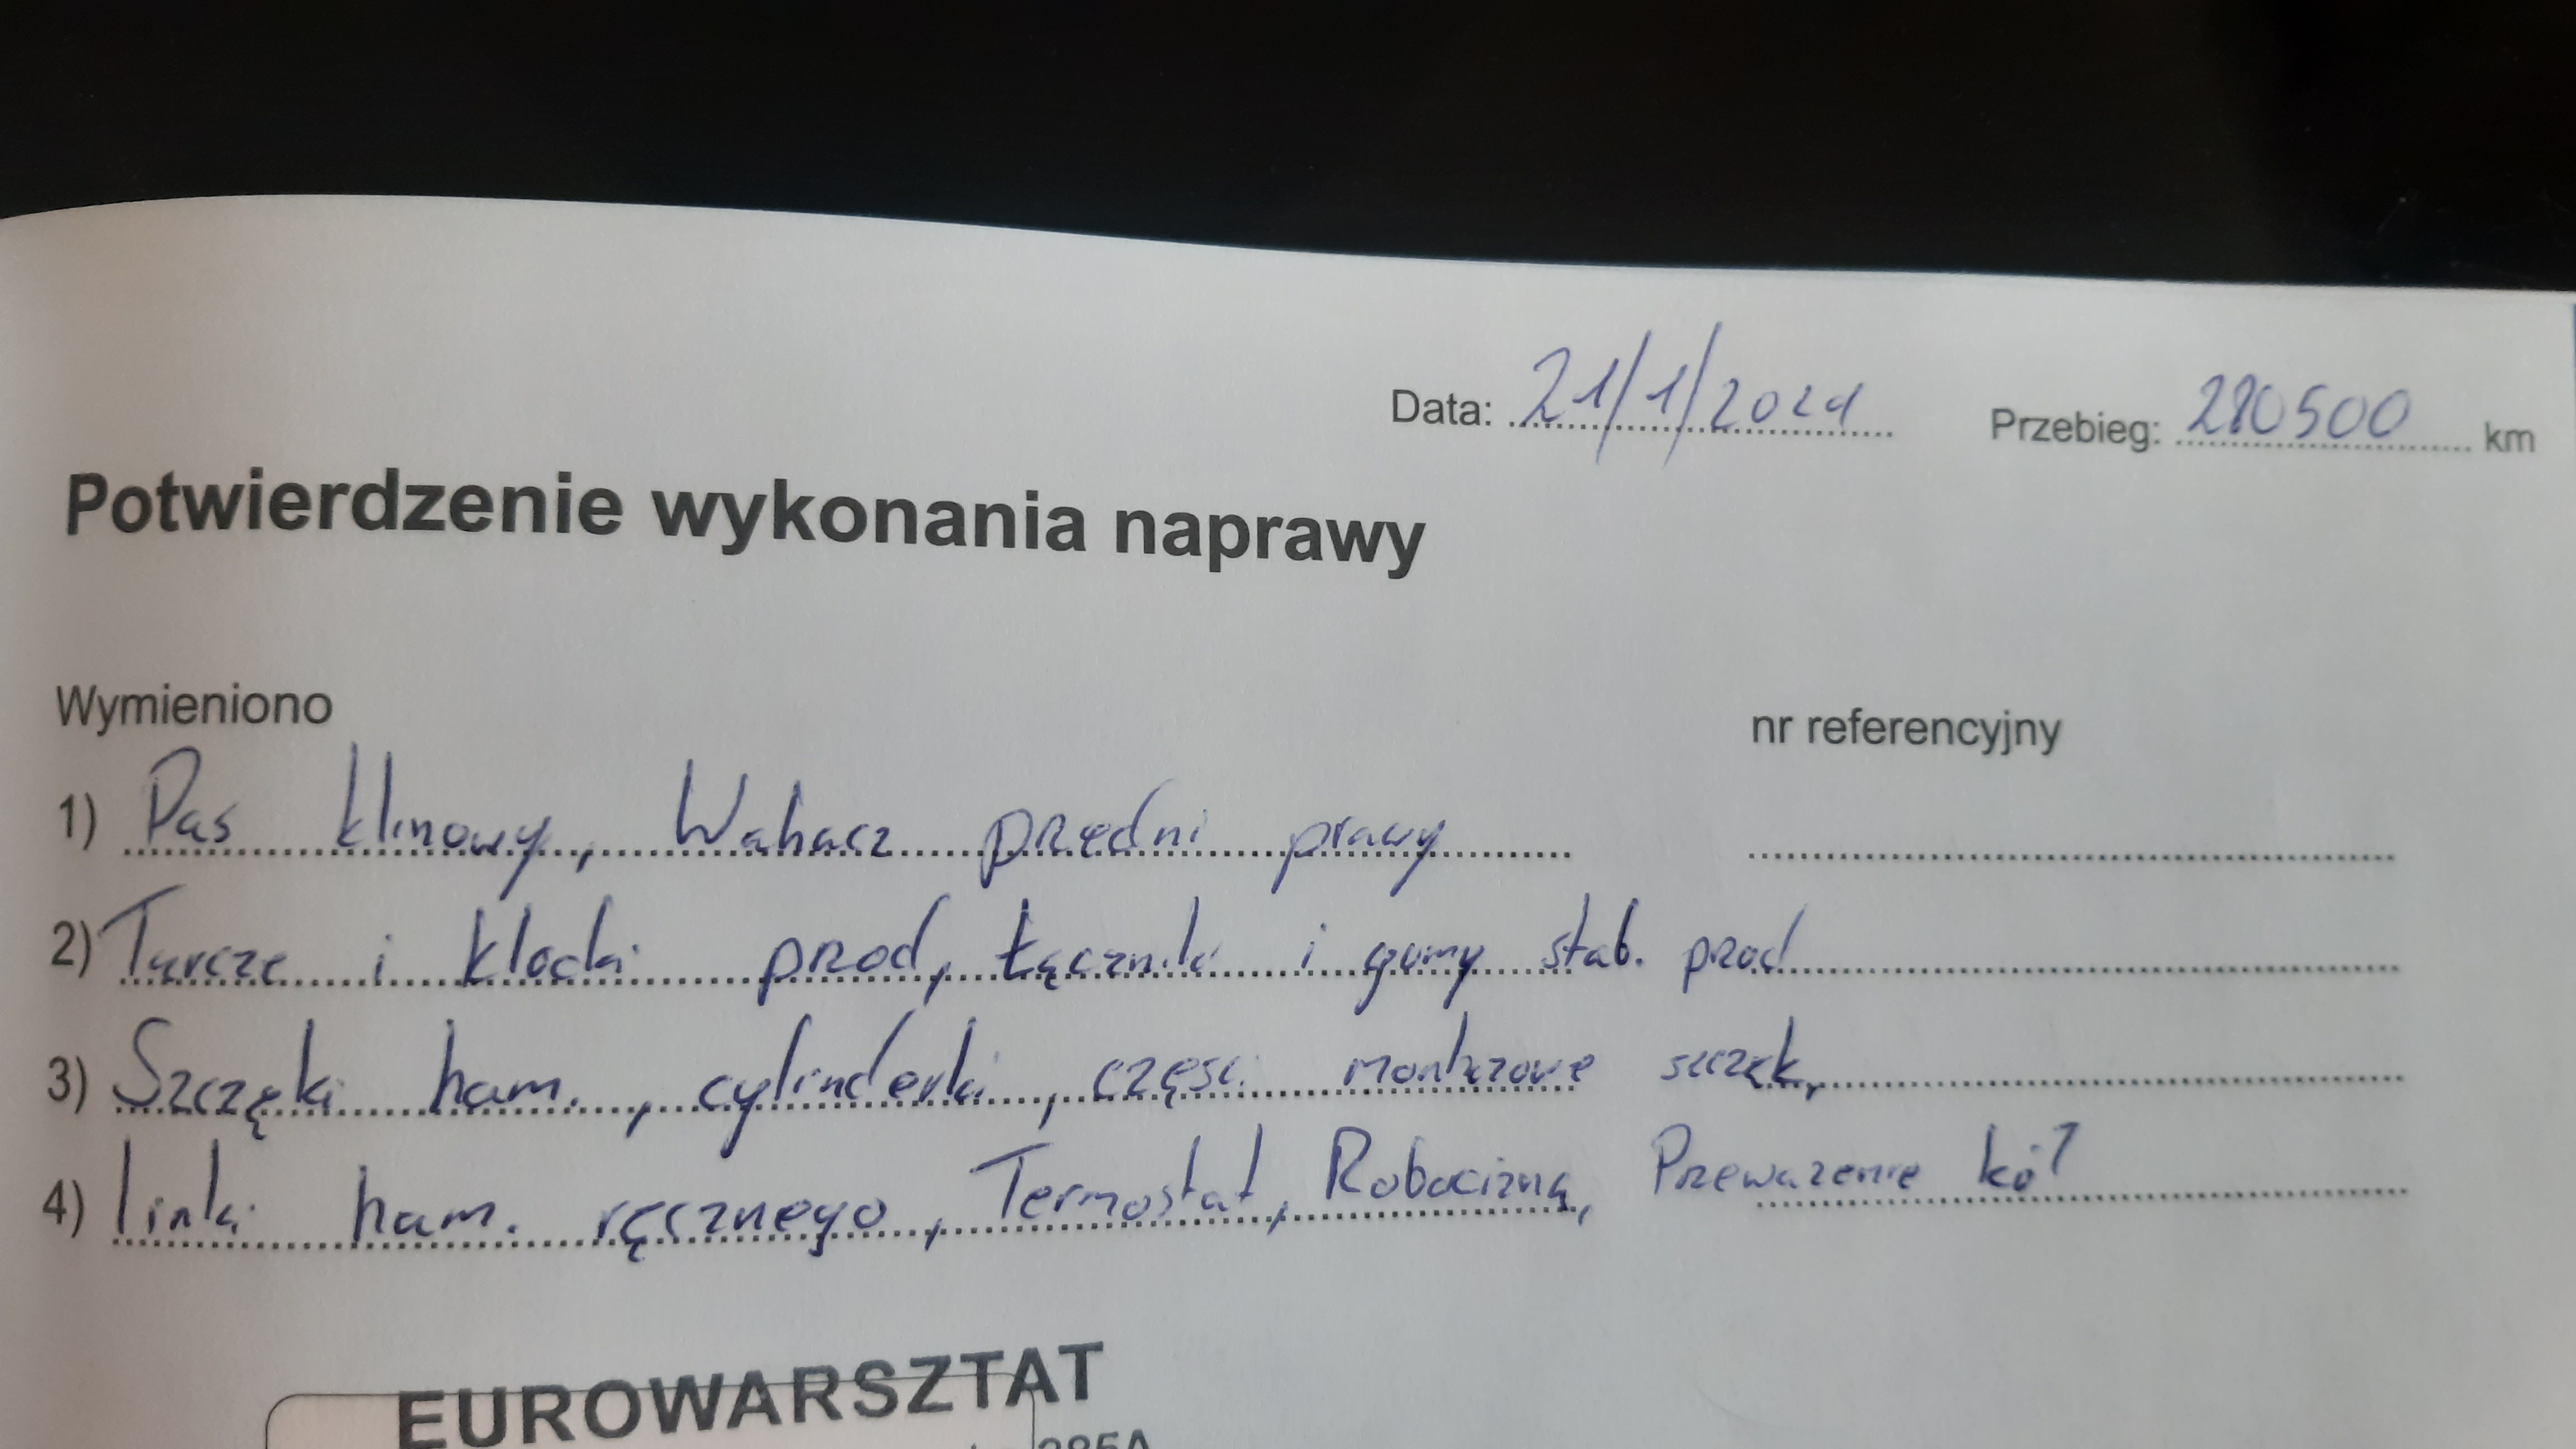 Data: 21/1/2021 Przebieg: 280500 km
Potwierdzenie wykonania naprawy
Wymieniono nr referencyjny
1) Pas klinowy, Wahacz przedni prawy
2) Tarcze i klocki przod, Łączniki i gumy stab. przod
3) Szczęki ham., cylinderki, części montażowe szczęk,
4) linki ham. ręcznego, Termostat, Robocizna, Przeważenie kół
EUROWARSZTAT
285A